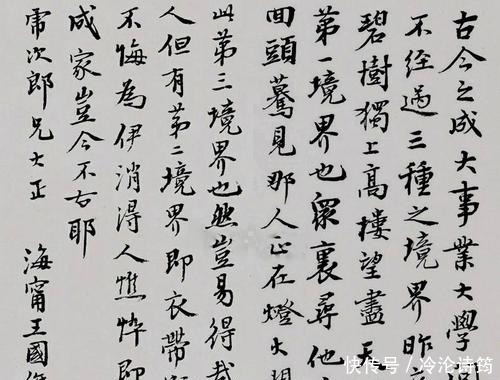 古今之成大事業大學
不經過三種之境界昨
碧樹獨上高樓望盡天
第一境界也眾裏尋他
回頭驀見那人正在燈火
此第三境界也然豈易得哉
人但有第二境界即衣帶
不悔為伊消得人憔悴即
成家豈今不古耶
次郎兄大正 海甯王國
快传号/冷沦诗筠